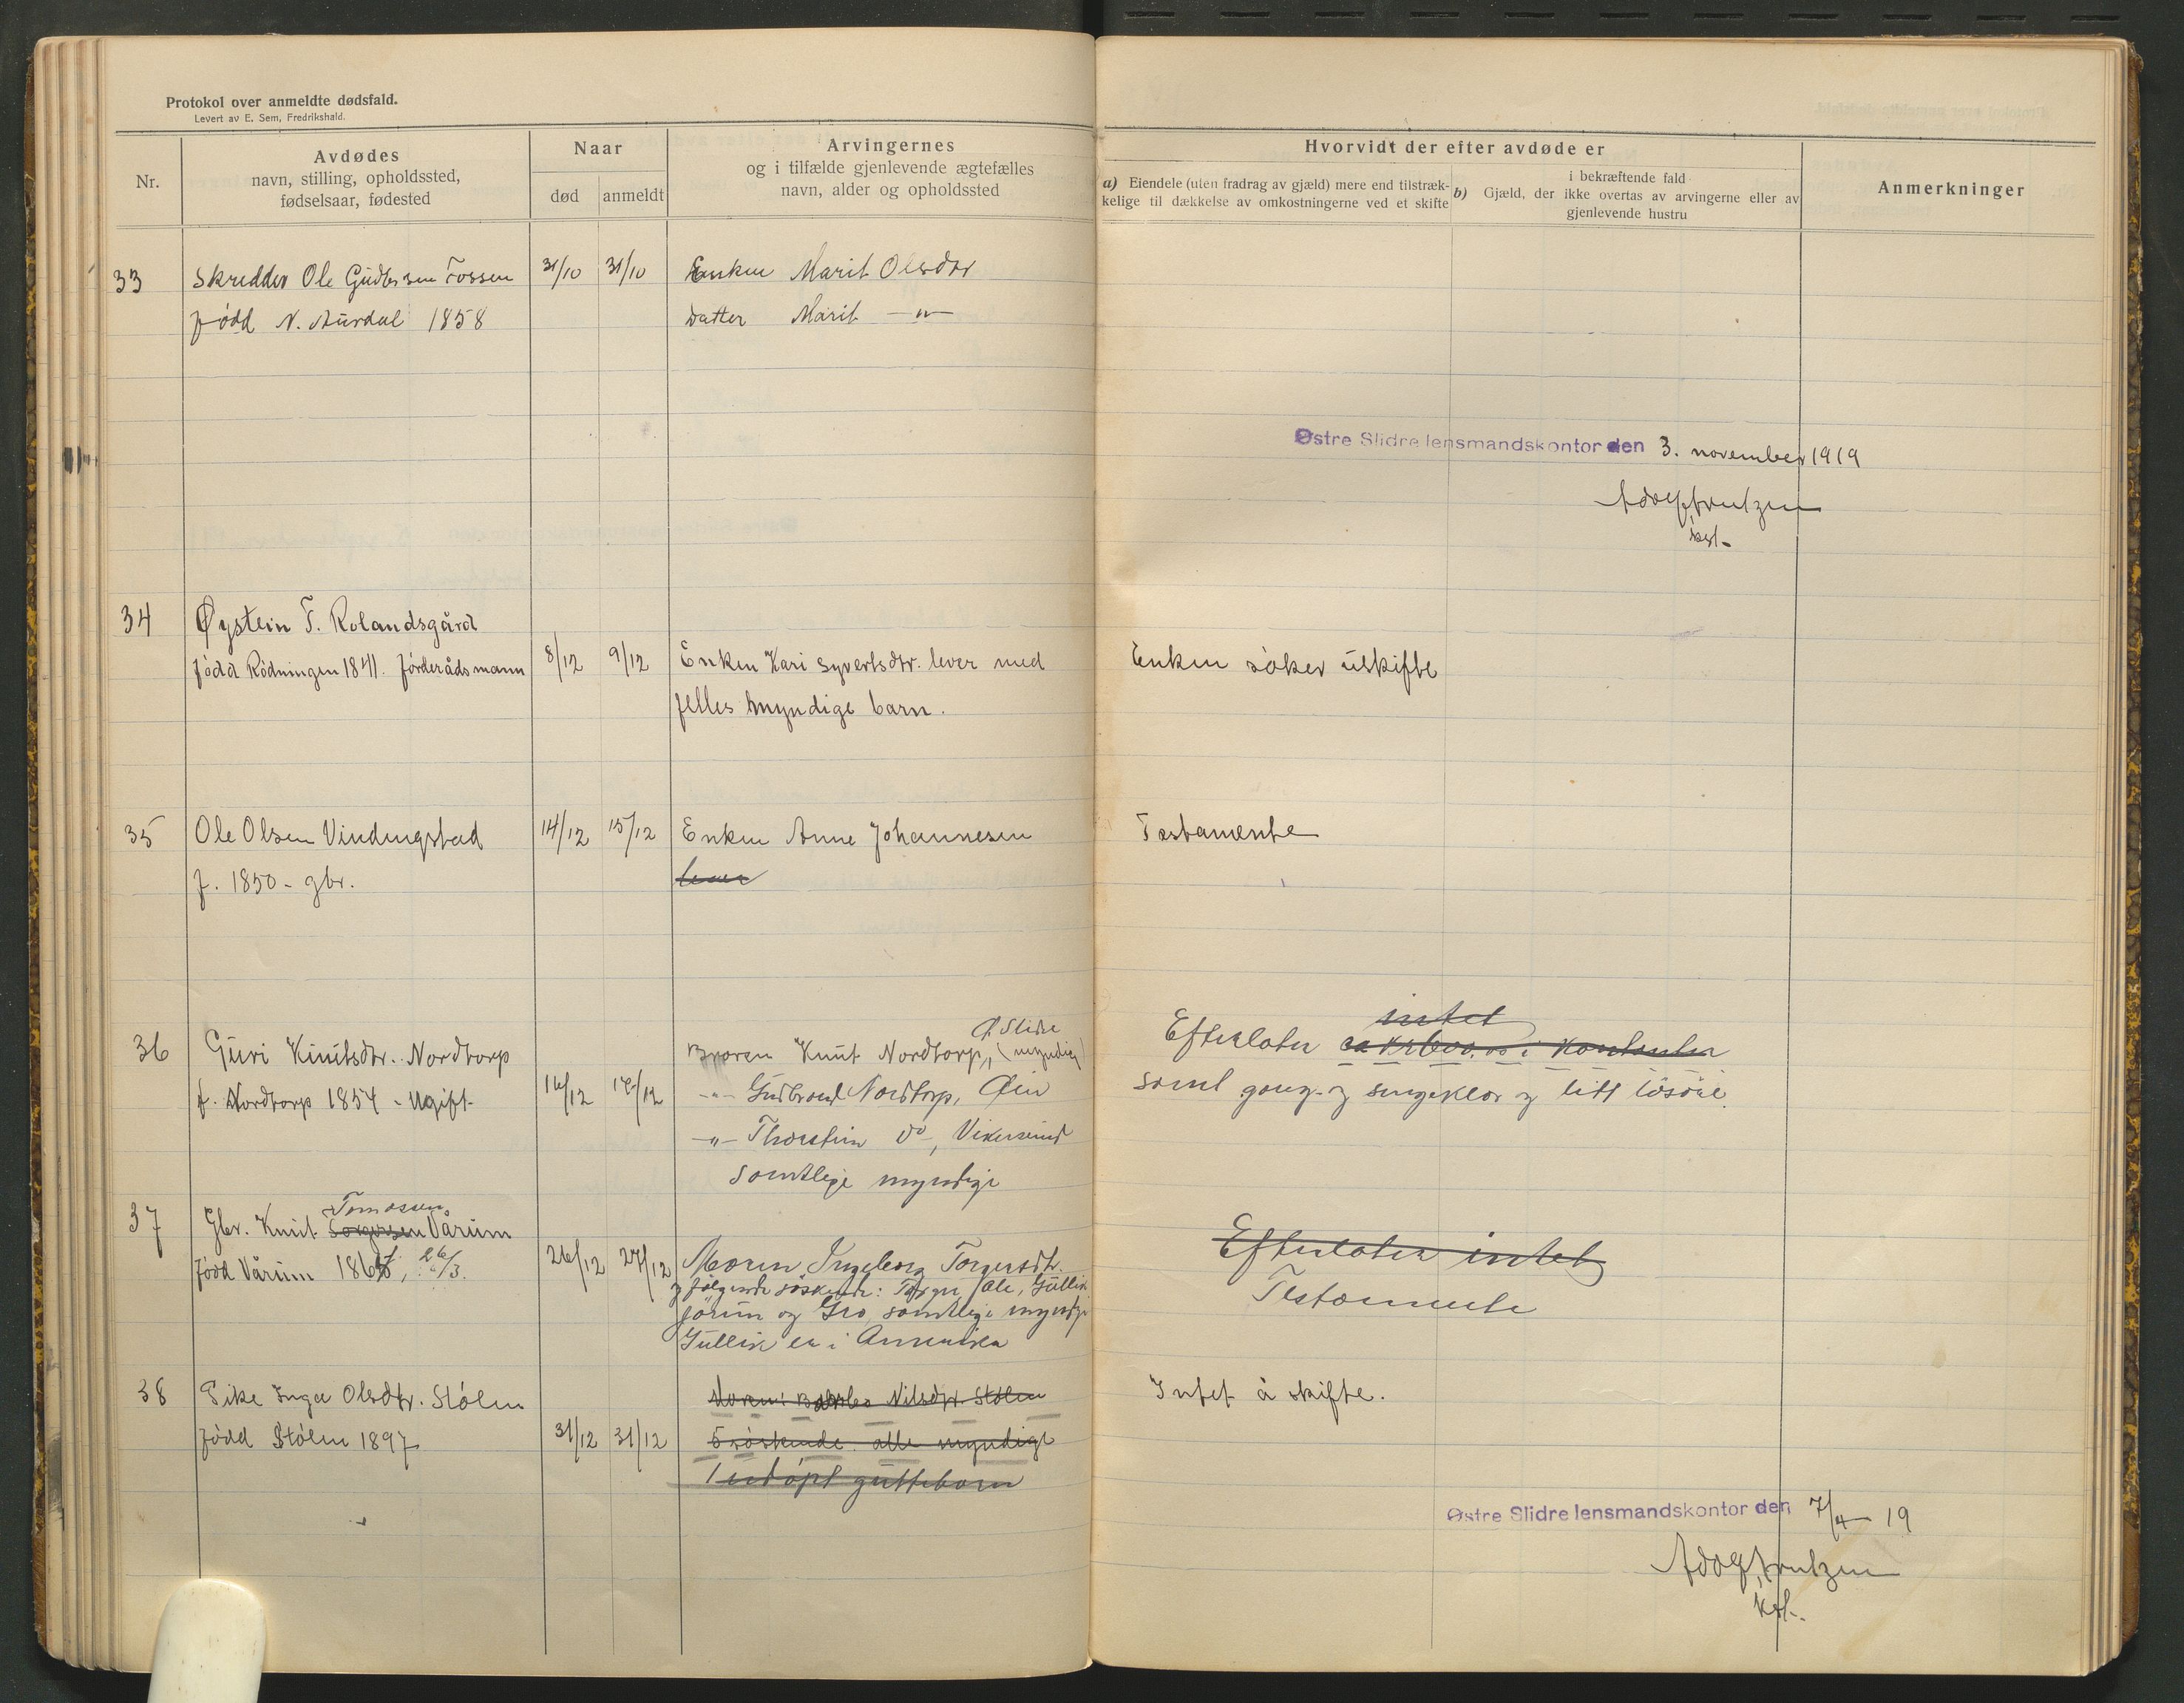 Protokol over anmeldte dødsfald.
Levert av E. Sem, Fredrikshald.
Nr.
Avdødes
navn, stilling, opholdssted,
fødselsaar, fødested
Naar
død
anmeldt
Arvingernes
og i tilfælde gjenlevende ægtefælles
navn, alder og opholdssted
Hvorvidt der efter avdøde er
a) Eiendele (uten fradrag av gjæld) mere end tilstræk-
kelige til dækkelse av omkostningerne ved et skifte
i bekræftende fald
b) Gjæld, der ikke overtas av arvingerne eller av
gjenlevende hustru
Anmerkninger
33 Skredder Ole Gudbrsen Fossen 31/10 31/10 Enken Marit Olesdtr
født N. Aurdal 1858 Datter Marit —"—
Østre Slidre lensmandskontor den 3. november 1919
34 Øystein T. Rolandsgård
født Rödningen 1841. förderådsmann 8/12 9/12 Enken Kari Syvertsdtr. lever med Enken söker uskifte
felles myndige barn.
35 Ole Olsen Vindingstad 14/12 15/12 Enken Anne Johannesen Testamente
f. 1850 - gbr. lever
36 Guri Knutsdtr. Nordtorp Broren Knut Nordtorp, Ø Slidre (myndig) Efterlater intet
f. Nordtorp 1854 - Ugift 16/12 -"- Gudbrand Nordtorp, samt gang- og sengeklær og litt lösöre.
-"- Thorstein do, Vikersund
samtlige myndige
37 Gbr. Knut Tomassen Vårum Efterlater intet
født Vårum 26/3. 26/12 27/12 Moren Ingeborg Torgersdtr. Testamente
og følgende söskende: Torger, Ole, Gullik
Jörun og Gro, samtlige myndige
Gullik er i Amerika
38 Pike Inga Olsdtr. Stölen Moren: Barbro Nilsdtr. Stölen Intet å skifte.
född Stölen 1897 31/12 31/12 5 söskende alle myndige
1 udöpt guttebarn
Østre Slidre lensmandskontor den 7/4 19